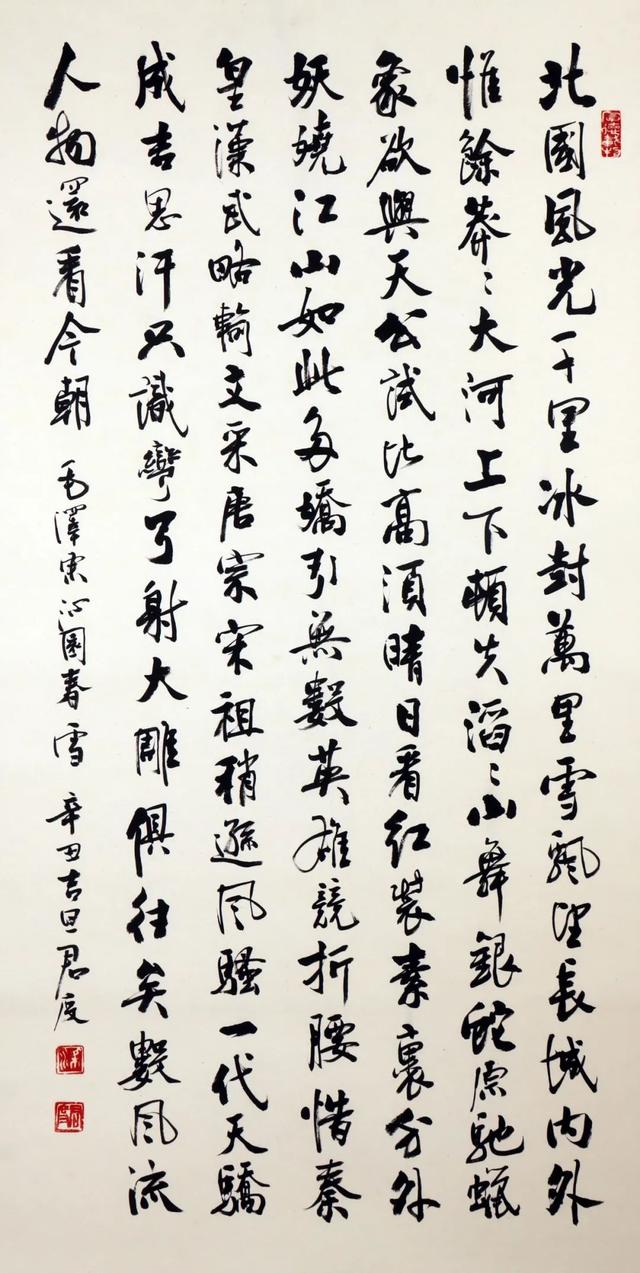 北國風光一千里冰封萬里雪飄望長城内外
惟餘莽〻大河上下頓失滔〻山舞銀蛇原馳蠟
象欲與天公試比高須晴日看紅裝素裹分外
妖嬈江山如此多嬌引無數英雄競折腰惜秦
皇漢武略輸文采唐宗宋祖稍遜風騷一代天驕
成吉思汗只識彎弓射大雕俱往矣數風流
人物還看今朝 毛澤東沁園春雪 辛丑吉旦君度